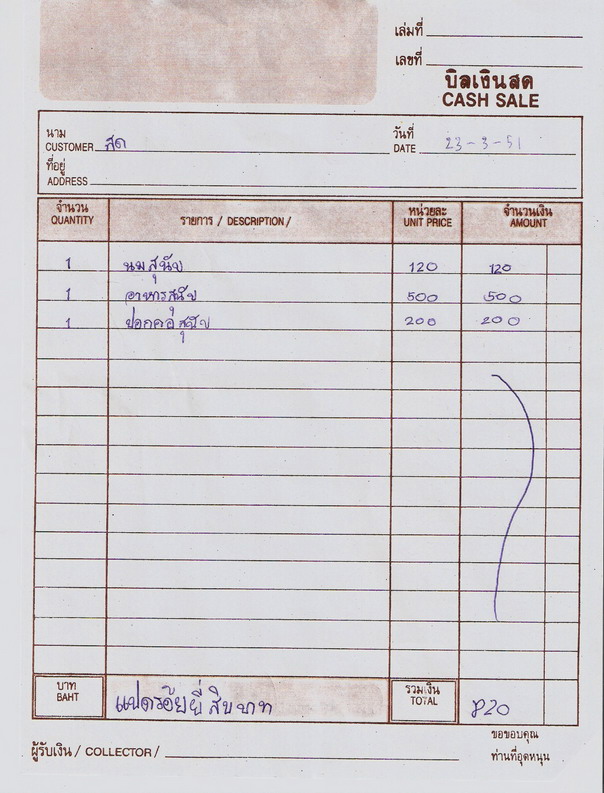 เล่มที่
เลขที่
บิลเงินสด
CASH SALE
นาม
CUSTOMER สด
วันที่
DATE 23-3-51
ที่อยู่
ADDRESS
จำนวน
QUANTITY
รายการ / DESCRIPTION /
หน่วยละ
UNIT PRICE
จำนวนเงิน
AMOUNT
1 นมสุนัข 120 120
1 อาหารสุนัข 500 500
1 ปลอกคอสุนัข 200 200
บาท
BAHT
แปดร้อยยี่สิบบาท
รวมเงิน
TOTAL
820
ผู้รับเงิน / COLLECTOR /
ขอขอบคุณ
ท่านที่อุดหนุน